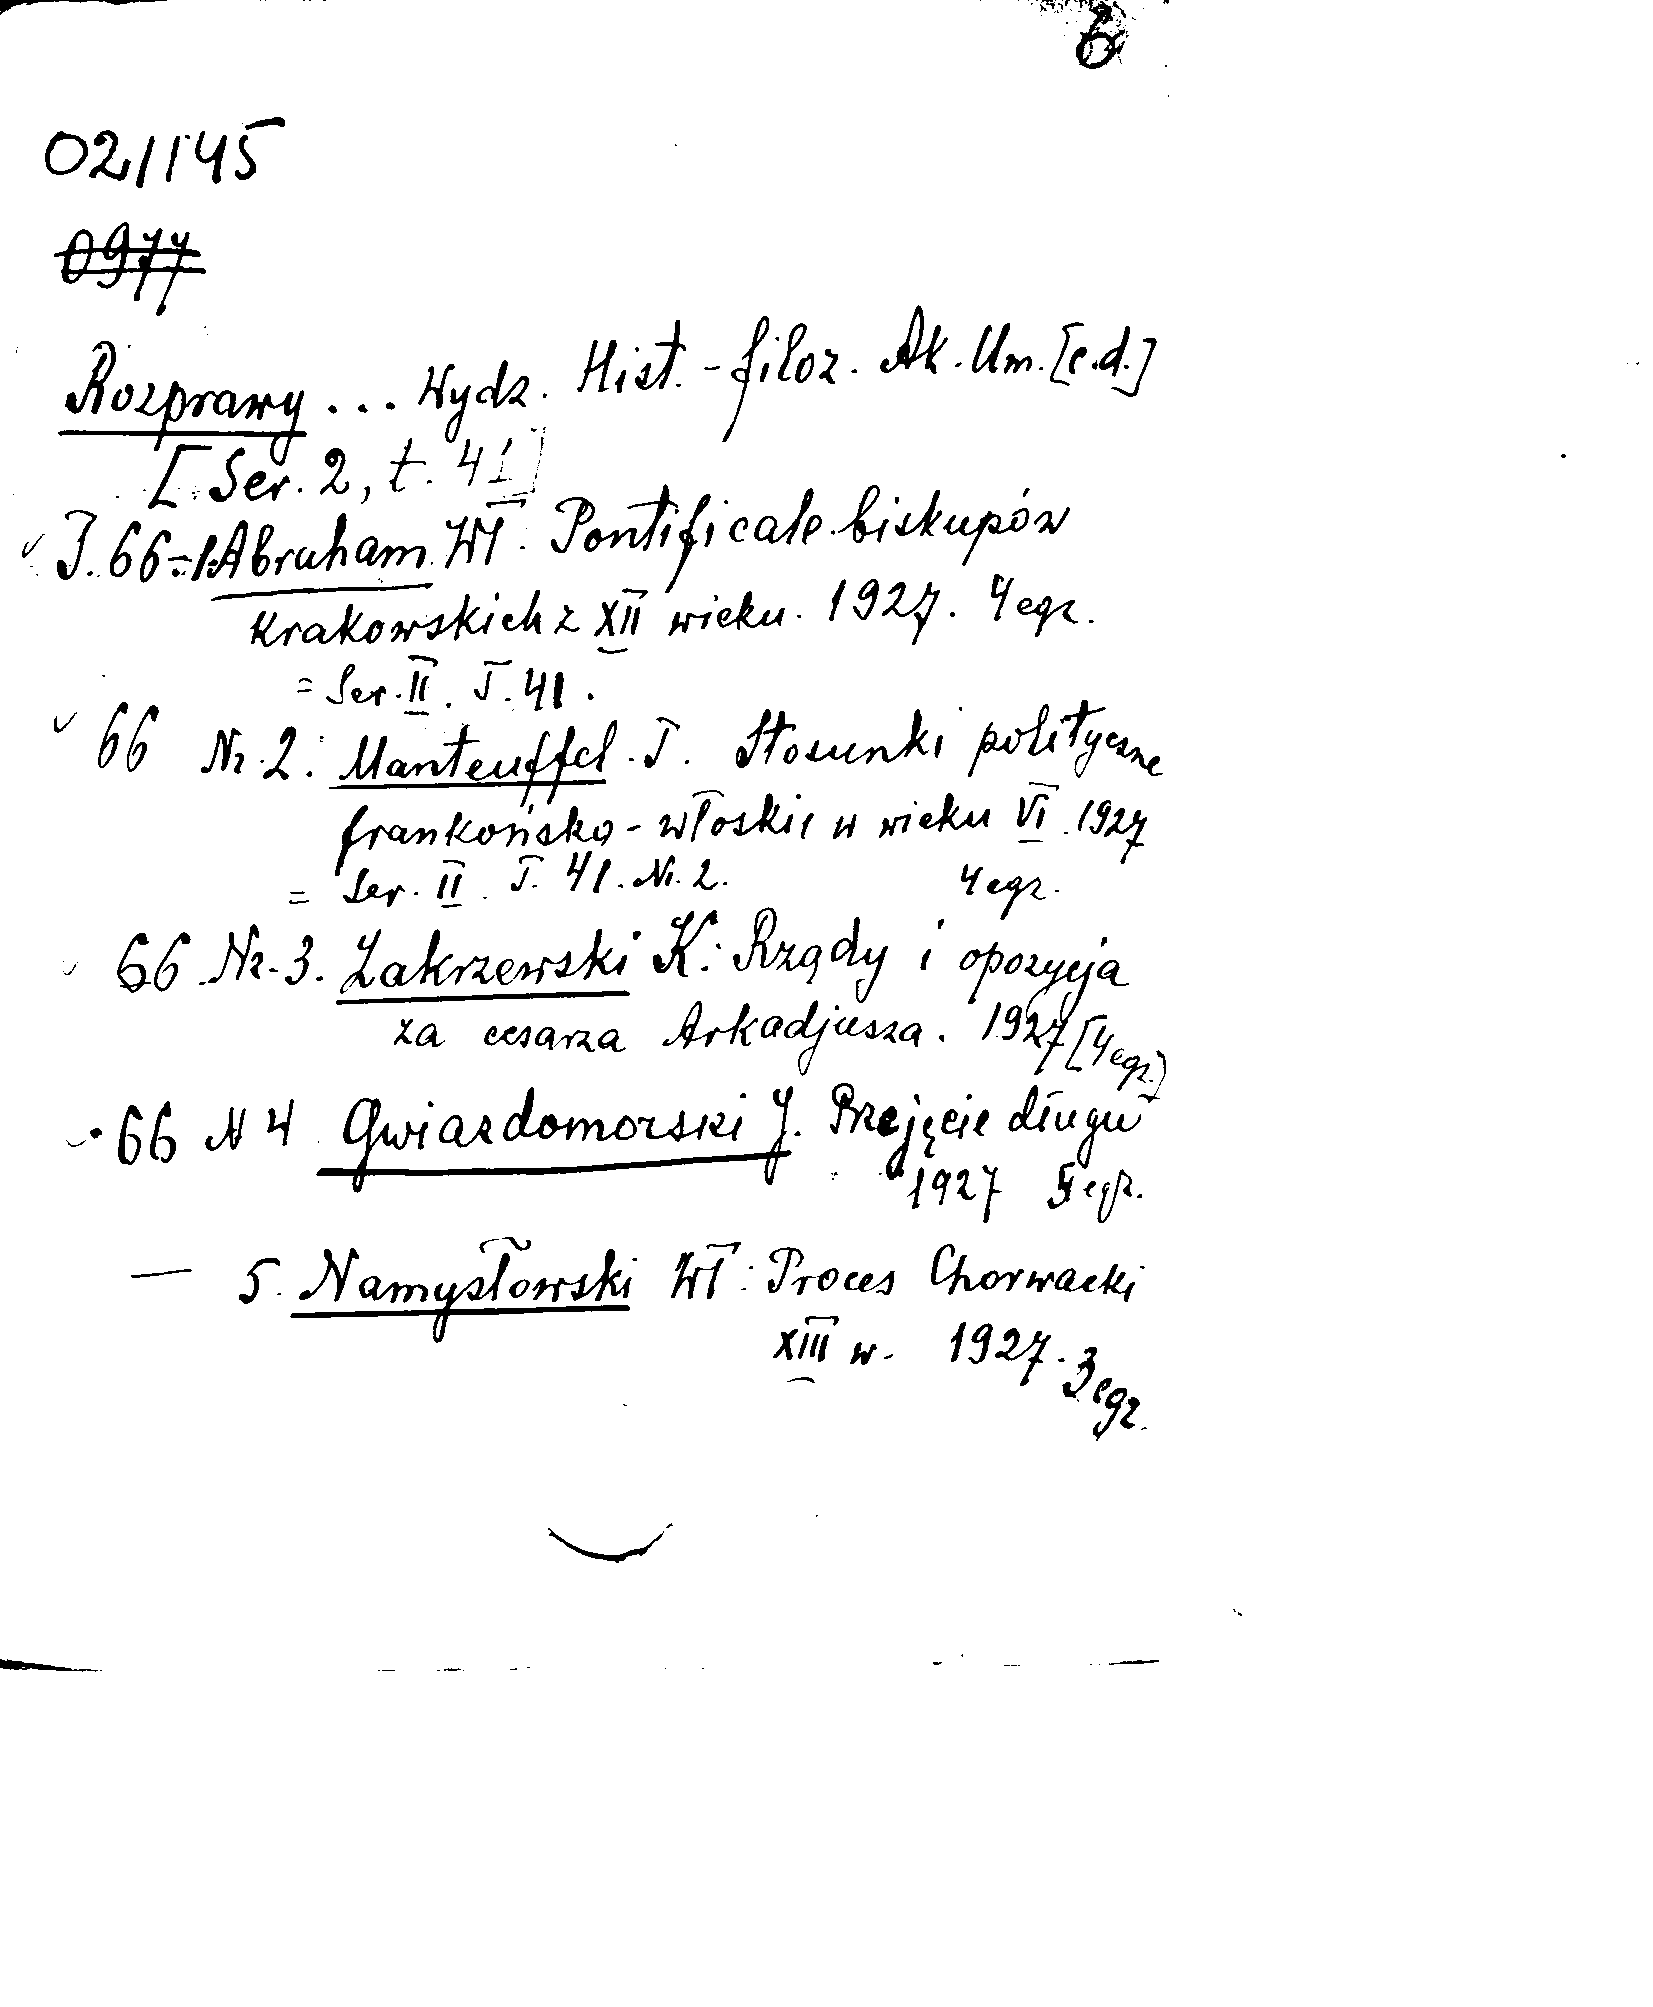 6
02/145
0977
Rozprawy ... Wydz. Hist.-filoz. Ak. Um. [c.d.]
[Ser. 2, t. 41]
T. 66-1. Abraham Wł. Pontificale biskupów
krakowskich z XII wieku. 1927. 4 egz.
= Ser. II. T. 41.
66 Nr. 2. Manteuffel T. Stosunki polityczne
frankońsko-włoskie w wieku VI. 1927
= Ser. II. T. 41. Nr. 2. 4 egz.
66 Nr. 3. Zakrzewski K. Rządy i opozycja
za cesarza Arkadjusza. 1927 [4 egz.]
66 N 4 Gwiazdomorski J. Przejęcie długu
1927 egz.
— 5. Namysłowski Wł: Proces Chorwacki
XIII w. 1927. 3 egz.